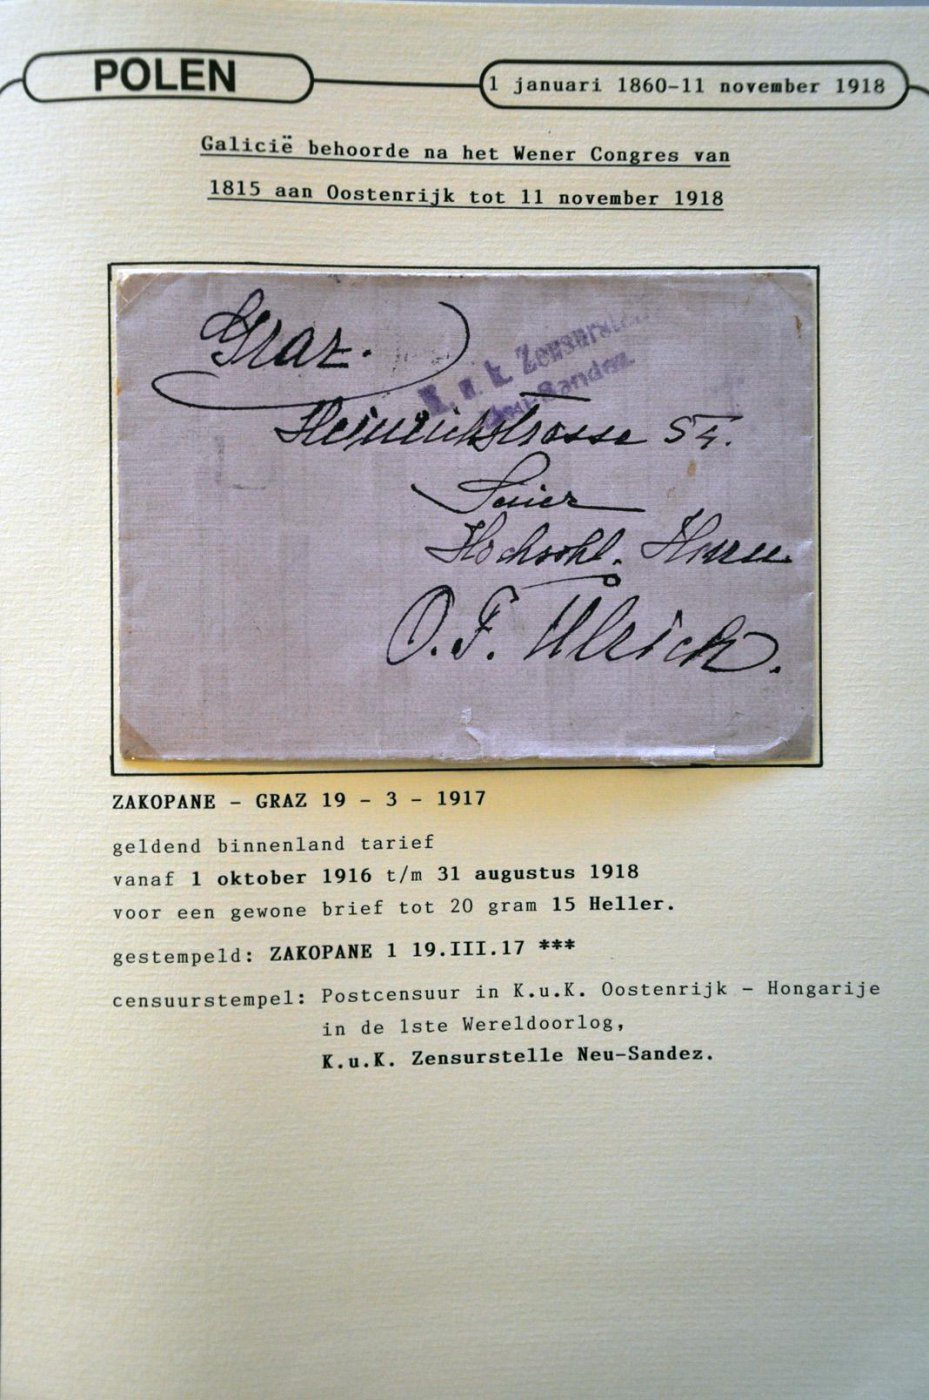 POLEN
1 januari 1860-11 november 1918
Galicië behoorde na het Wener Congres van
1815 aan Oostenrijk tot 11 november 1918
Graz.
K. u. k. Zensurstelle
Neu-Sandez.
Heinrichstrasse 54.
Seiner
Hochwohl. Herrn
O. F. Ulrich.
ZAKOPANE - GRAZ 19 - 3 - 1917
geldend binnenland tarief
vanaf 1 oktober 1916 t/m 31 augustus 1918
voor een gewone brief tot 20 gram 15 Heller.
gestempeld: ZAKOPANE 1 19.III.17 ***
censuurstempel: Postcensuur in K.u.K. Oostenrijk - Hongarije
in de 1ste Wereldoorlog,
K.u.K. Zensurstelle Neu-Sandez.